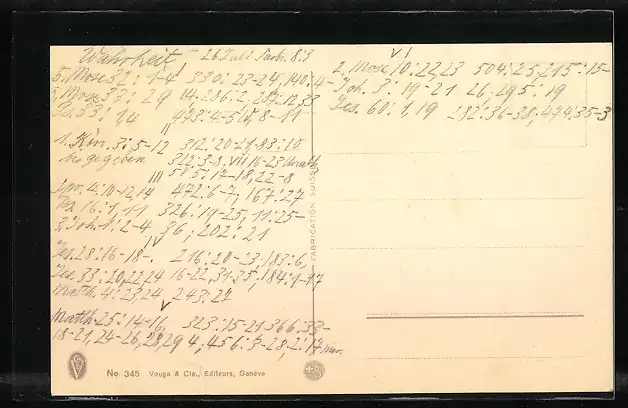 Wahrheit 26 Juli Sach. 8:3
5. Mose 32: 1-4 330: 23-24, 140:4-
5. Mose 33: 29 14, 286:2, 287:12,33
Ps 33: 14 473:4-5, 8-11
II
1. Kön. 3: 5-12 312: 20-21, 83:10
322:3-8. VII 16-23
III 517-18, 22-8
Spr. 4:10-12,14 472:6-7, 167:27
Ps. 16:1, 7-11 326:19-25, 11:25-
3. Joh. 1: 2-4 36, 202: 21
IV
Jes. 28:16-18-. 216:20-23, 183:6,
Jes. 33: 20,22,24 16-22, 31-25, 184:1-17
Matth. 4: 23,24 243:27
V
Matth 25: 14-16, 323:15-21 366:33-
18-21, 24-26, 28,29 4, 456:3-28, 2:17 nur.
VI
2. Mose 10:22,23 504:25, 215:15-
Joh. 3: 19-21 26, 295: 19
Jes. 60: 1, 19 282:36-38, 474:35-3
FABRICATION SUISSE
No. 345 Vouga & Cie., Éditeurs, Genève